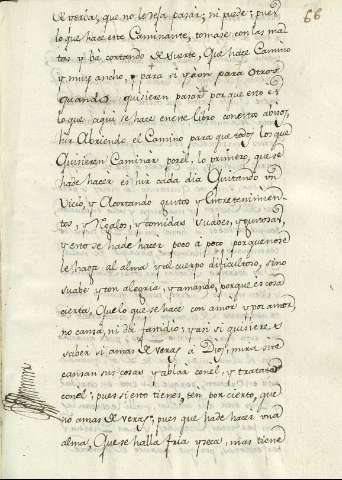 66
de verlas, que no le deja pasar; ni puede; pues
lo que hace este Caminante, tomase con las ma-
tas y bà cortando de suerte, Que hace Camino
y muy ancho, para si y aun para otros
quando quisieren pasar; porque esto es
lo que aqui se hace en este Libro con estos abisos,
hir Abriendo el Camino para que todos los que
Quisieren Caminar por el, lo primero, que se
hade hacer es hir cada dia Quitando un
Vicio, y Acortando gustos y Entretenimien-
tos, y Regalos, y comidas suabes, y gustosas,
y esto se hade hacer poco a poco porque no se
le haga al alma y al cuerpo dificultoso, sino
suabe y con alegria, y amando, porque es cosa
cierta, Que lo que se hace con amor y por amor
no cansa, ni dà fastidio, y asi si quisieres
saber si amas de veras à Dios, mira si te
cansan sus cosas y ablar con el, y tratar
con el; pues si esto tienes, ten por cierto, que
no amas de veras; pues que hade hacer una
alma, Que se halla fria y seca, mas tiene